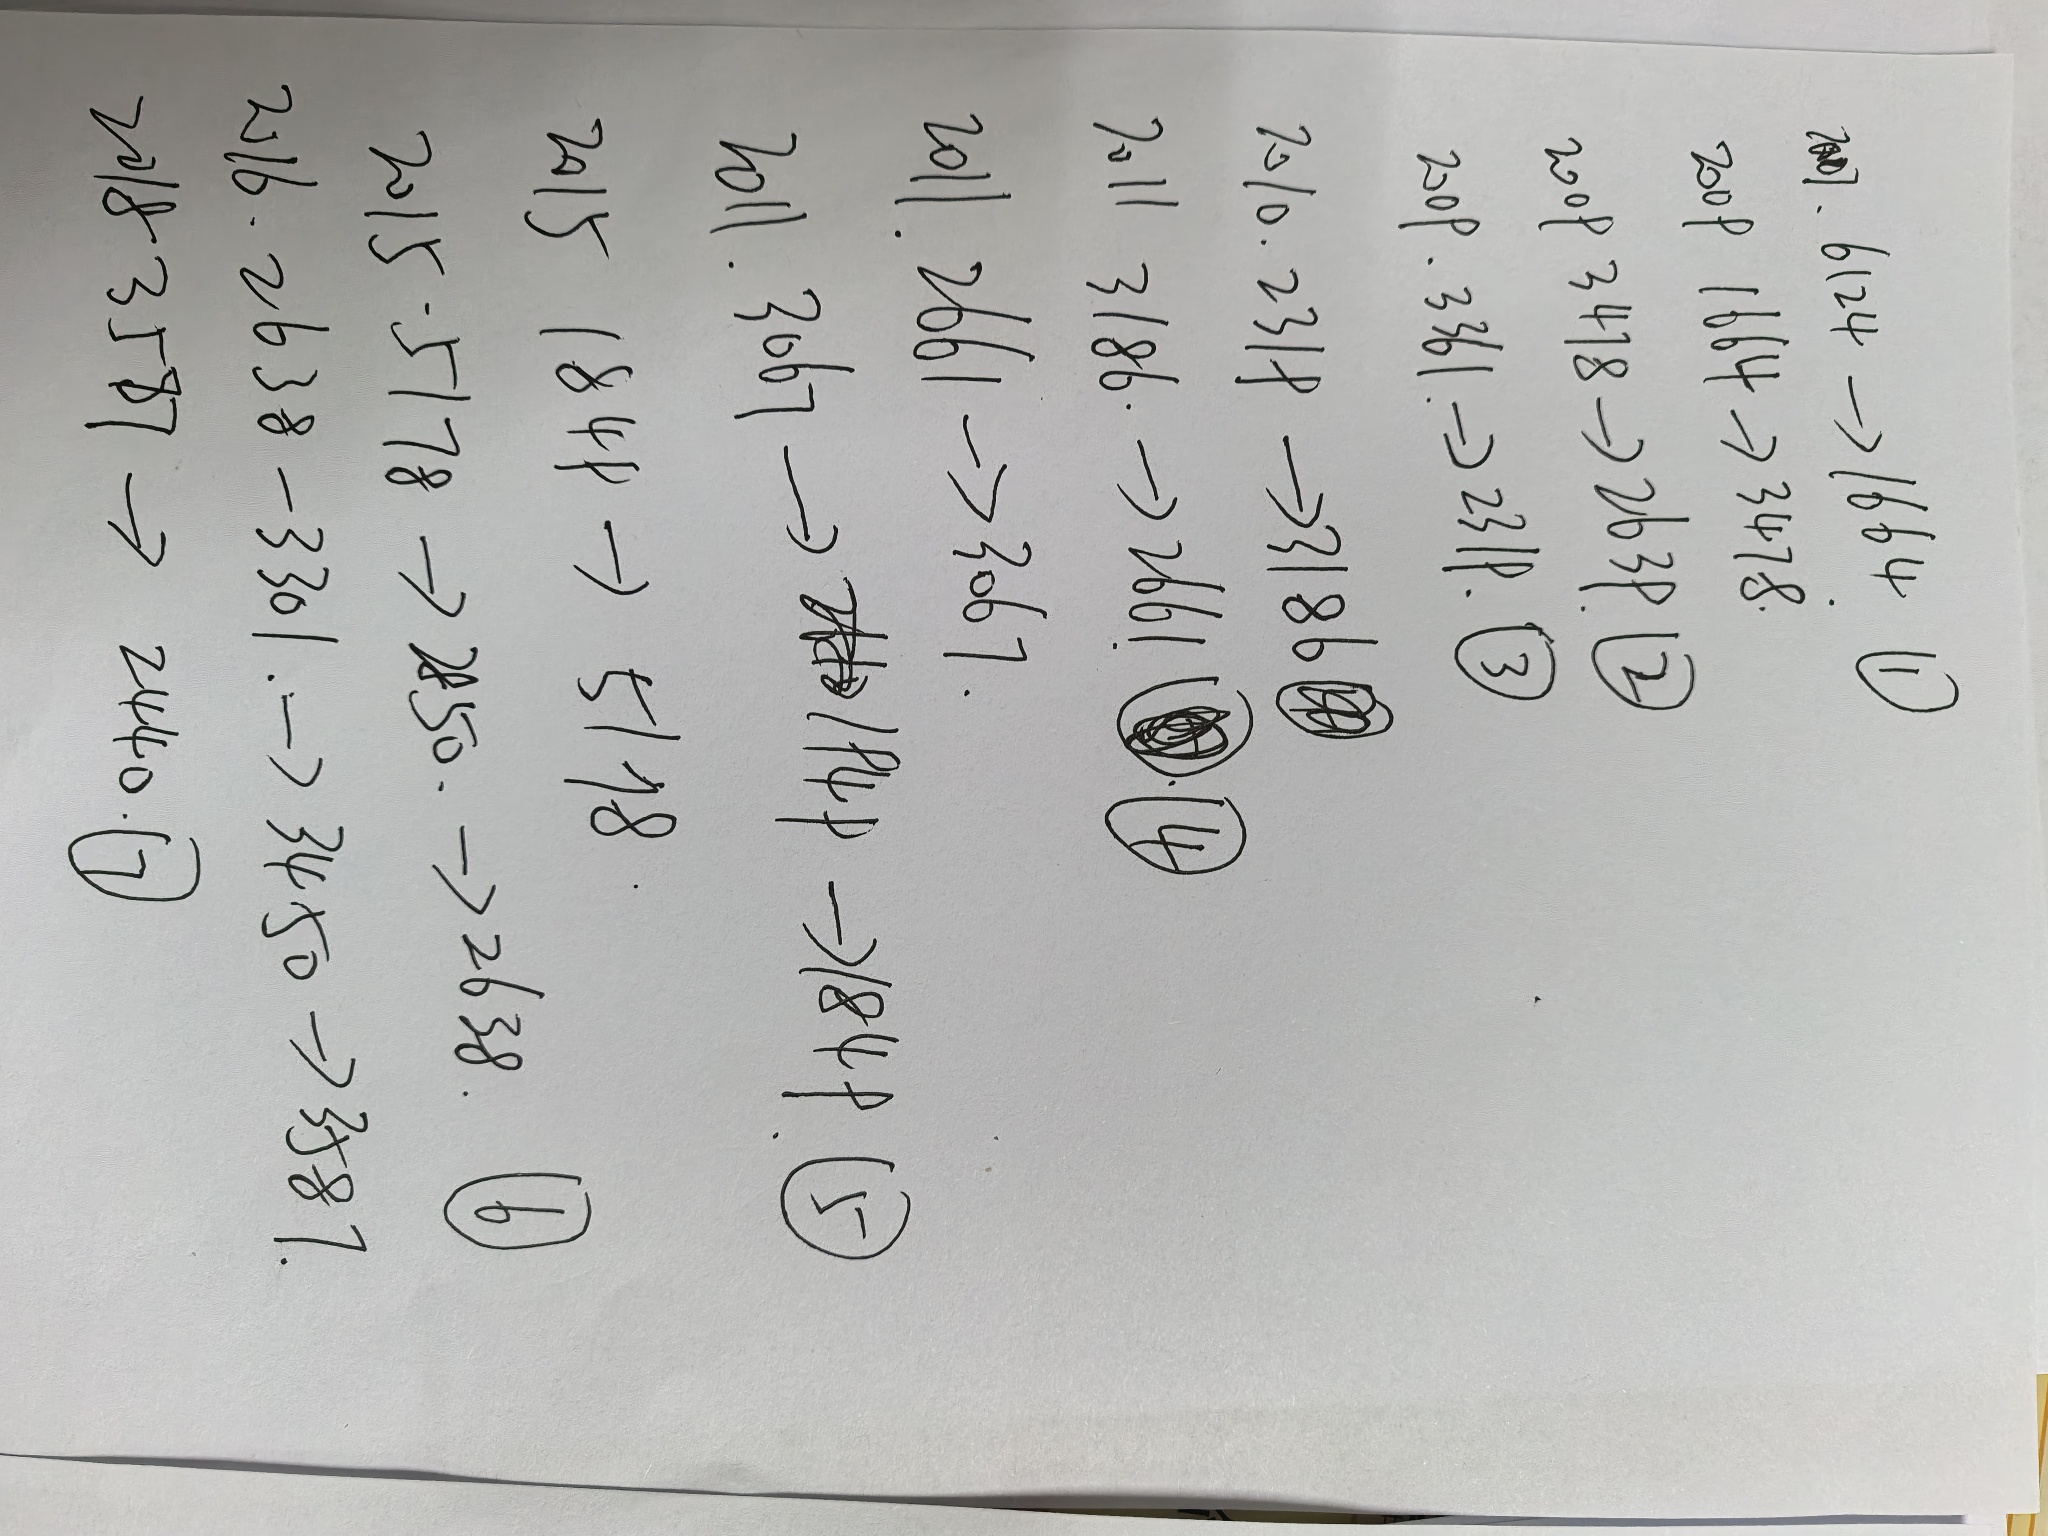 6124 → 1664. ①
2009 1664 → 3478.
2009 3478 → 2639. ②
2009. 3361. → 2319. ③
2010. 2319 → 3186
2011 3186. → 2661. ④
2011. 2661 → 3067.
2011. 3067 → 1949 → 1849. ⑤
2015 1849 → 5178.
2015.5178 → → 2638. ⑥
2016. 2638 - 3301. → 3450 → 3587.
2018-3587 → 2440. ⑦